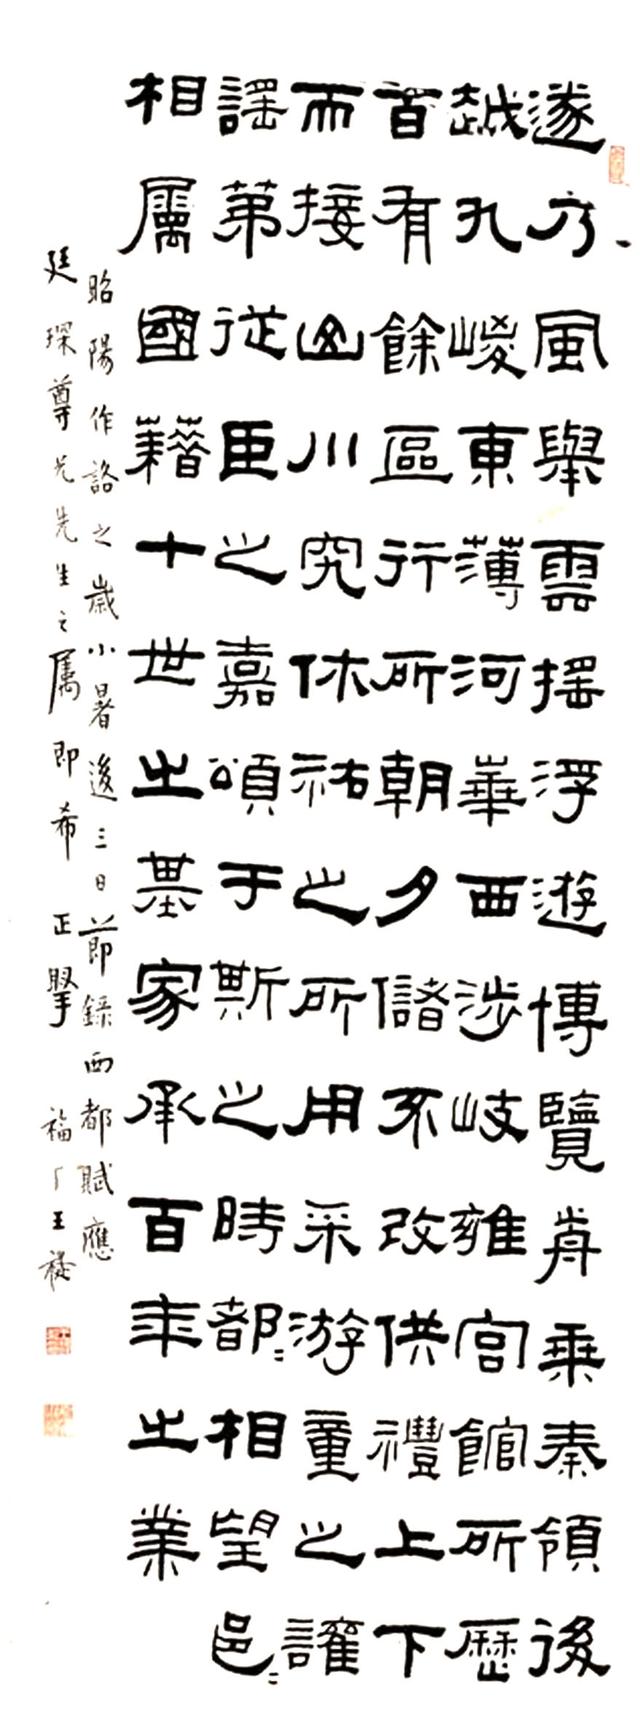 遂乃風舉雲搖浮遊博覽歬乘秦領後
越九嵕東薄河華西涉岐雍宮館所歷
百有餘區行所朝夕儲不改供禮上下
而接山川究休祐之所用采游童之讙
謠第從臣之嘉頌于斯之時都〻相望邑〻
相屬國籍十世之基家承百年之業
昭陽作詻之歲小暑後三日節錄西都賦應
廷琛尊兄先生之屬即希 正擥 福厂王禔